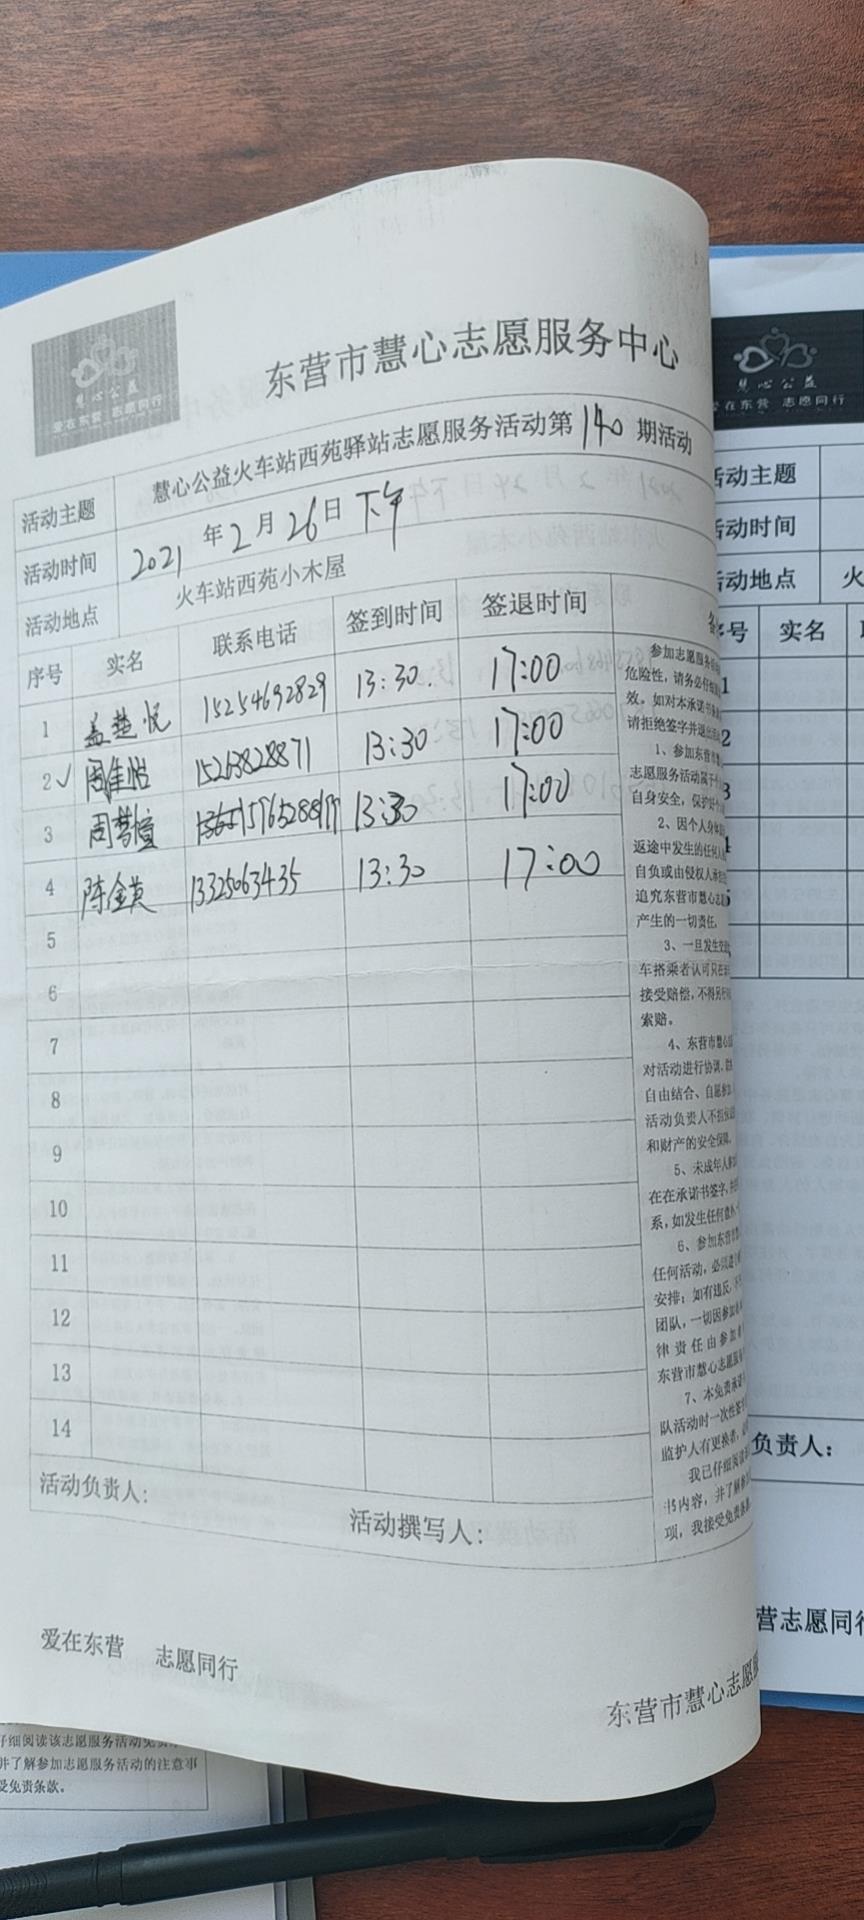 慧心公益
爱在东营 志愿同行
东营市慧心志愿服务中心
活动主题 慧心公益火车站西苑驿站志愿服务活动第140期活动
活动时间 2021年2月26日下午
活动地点 火车站西苑小木屋
序号 实名 联系电话 签到时间 签退时间
1 孟楚悦 15254692829 13:30 17:00
2✓ 周佳怡 15263828871 13:30 17:00
3 周梦萱 13:30 17:00
4 陈金英 13325063435 13:30 17:00
5
6
7
8
9
10
11
12
13
14
参加志愿服务
危险性，请务必仔细
效。如对本承诺书
请拒绝签字并退出
1、参加东营市
志愿服务活动属于
自身安全，保护好
2、因个人身体
返途中发生的任何
自负或由侵权人承担
追究东营市慧心志愿
产生的一切责任。
3、一旦发生交通
车搭乘者认可只在
接受赔偿，不得另行
索赔。
4、东营市慧心
对活动进行协调、
自由结合、自愿参加
活动负责人不担
和财产的安全保障。
5、未成年人参加
在在承诺书签字，并
系，如发生任何意外
6、参加东营市
任何活动，必须
安排；如有违反，
团队，一切因参加
律责任由参加
东营市慧心志愿服务
7、本免责承诺
队活动时一次性签
监护人有更换者，
我已仔细阅读
书内容，并了解参加
项，我接受免责条款
活动负责人： 活动撰写人：
爱在东营 志愿同行
东营市慧心志愿服
慧心公益
爱在东营 志愿同行
活动主题
活动时间
活动地点 火
序号 实名
1
2
3
4
5
负责人：
营志愿同行
仔细阅读该志愿服务活动免责
并了解参加志愿服务活动的注意事
受免责条款。